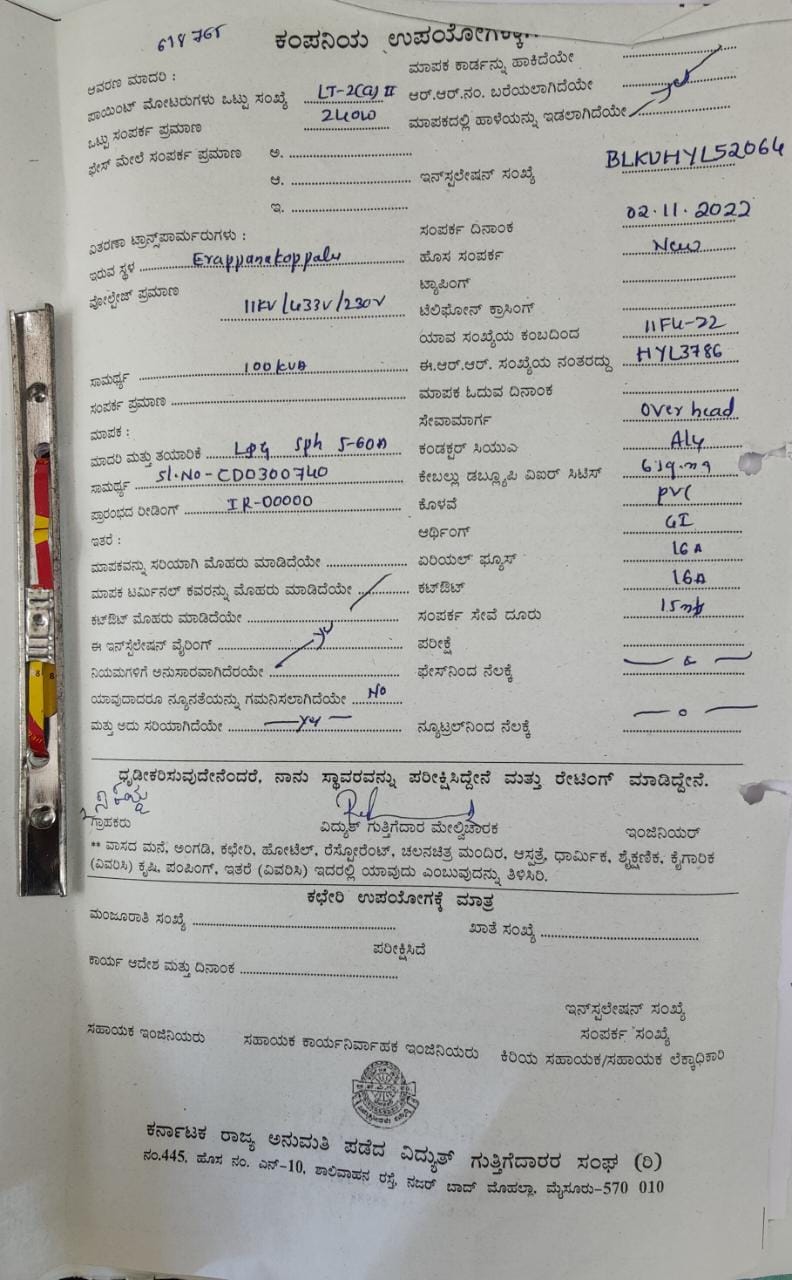 618765
ಕಂಪನಿಯ ಉಪಯೋಗಕ್ಕೆ
ಆವರಣ ಮಾದರಿ :
ಮಾಪಕ ಕಾರ್ಡನ್ನು ಹಾಕಿದೆಯೇ
ಪಾಯಿಂಟ್ ಮೋಟರುಗಳು ಒಟ್ಟು ಸಂಖ್ಯೆ LT-2(a) II
ಆರ್.ಆರ್.ನಂ. ಬರೆಯಲಾಗಿದೆಯೇ
ಒಟ್ಟು ಸಂಪರ್ಕ ಪ್ರಮಾಣ 240W
ಮಾಪಕದಲ್ಲಿ ಹಾಳೆಯನ್ನು ಇಡಲಾಗಿದೆಯೇ
ಫೇಸ್ ಮೇಲೆ ಸಂಪರ್ಕ ಪ್ರಮಾಣ ಅ.
ಆ.
ಇನ್‌ಸ್ಟಲೇಷನ್ ಸಂಖ್ಯೆ BLKVHYL52064
ಇ.
ಸಂಪರ್ಕ ದಿನಾಂಕ 02.11.2022
ವಿತರಣಾ ಟ್ರಾನ್ಸ್‌ಪಾರ್ಮರುಗಳು :
ಹೊಸ ಸಂಪರ್ಕ New
ಇರುವ ಸ್ಥಳ Erappanakoppalu
ಟ್ಯಾಪಿಂಗ್
ವೋಲ್ಟೇಜ್ ಪ್ರಮಾಣ 11KV/433V/230V
ಟೆಲಿಫೋನ್ ಕ್ರಾಸಿಂಗ್
ಯಾವ ಸಂಖ್ಯೆಯ ಕಂಬದಿಂದ
ಸಾಮರ್ಥ್ಯ 100kVA
ಈ.ಆರ್.ಆರ್. ಸಂಖ್ಯೆಯ ನಂತರದ್ದು HYL3786
ಸಂಪರ್ಕ ಪ್ರಮಾಣ
ಮಾಪಕ ಓದುವ ದಿನಾಂಕ
ಮಾಪಕ :
ಸೇವಾಮಾರ್ಗ Over head
ಮಾದರಿ ಮತ್ತು ತಯಾರಿಕೆ 5-60A
ಕಂಡಕ್ಟರ್ ಸಿಯುಎ Aly
ಸಾಮರ್ಥ್ಯ Sl.No-CD0300740
ಕೇಬಲ್ಲು ಡಬ್ಲ್ಯೂಪಿ ವಿಐರ್ ಸಿಟಿಸ್
ಪ್ರಾರಂಭದ ರೀಡಿಂಗ್ IR-00000
ಕೊಳವೆ PVC
ಇತರೆ :
ಆರ್ಥಿಂಗ್ GI
ಮಾಪಕವನ್ನು ಸರಿಯಾಗಿ ಮೊಹರು ಮಾಡಿದೆಯೇ
ಏರಿಯಲ್ ಫ್ಯೂಸ್ 16A
ಮಾಪಕ ಟರ್ಮಿನಲ್ ಕವರನ್ನು ಮೊಹರು ಮಾಡಿದೆಯೇ
ಕಟ್‌ಔಟ್ 16A
ಕಟ್‌ಔಟ್ ಮೊಹರು ಮಾಡಿದೆಯೇ
ಸಂಪರ್ಕ ಸೇವೆ ದೂರು
ಈ ಇನ್‌ಸ್ಟಲೇಷನ್ ವೈರಿಂಗ್
ಪರೀಕ್ಷೆ
ನಿಯಮಗಳಿಗೆ ಅನುಸಾರವಾಗಿದೆರಯೇ
ಫೇಸ್‌ನಿಂದ ನೆಲಕ್ಕೆ
ಯಾವುದಾದರೂ ನ್ಯೂನತೆಯನ್ನು ಗಮನಿಸಲಾಗಿದೆಯೇ No
ಮತ್ತು ಅದು ಸರಿಯಾಗಿದೆಯೇ
ನ್ಯೂಟ್ರಲ್‌ನಿಂದ ನೆಲಕ್ಕೆ
ಧೃಡೀಕರಿಸುವುದೇನೆಂದರೆ, ನಾನು ಸ್ಥಾವರವನ್ನು ಪರೀಕ್ಷಿಸಿದ್ದೇನೆ ಮತ್ತು ರೇಟಿಂಗ್ ಮಾಡಿದ್ದೇನೆ.
ಗ್ರಾಹಕರು
ವಿದ್ಯುತ್ ಗುತ್ತಿಗೆದಾರ ಮೇಲ್ವಿಚಾರಕ
ಇಂಜಿನಿಯರ್
** ವಾಸದ ಮನೆ, ಅಂಗಡಿ, ಕಛೇರಿ, ಹೋಟೆಲ್, ರೆಸ್ಟೋರೆಂಟ್, ಚಲನಚಿತ್ರ ಮಂದಿರ, ಆಸ್ಪತ್ರೆ, ಧಾರ್ಮಿಕ, ಶೈಕ್ಷಣಿಕ, ಕೈಗಾರಿಕ
(ವಿವರಿಸಿ) ಕೃಷಿ, ಪಂಪಿಂಗ್, ಇತರೆ (ವಿವರಿಸಿ) ಇದರಲ್ಲಿ ಯಾವುದು ಎಂಬುವುದನ್ನು ತಿಳಿಸಿರಿ.
ಕಛೇರಿ ಉಪಯೋಗಕ್ಕೆ ಮಾತ್ರ
ಮಂಜೂರಾತಿ ಸಂಖ್ಯೆ
ಖಾತೆ ಸಂಖ್ಯೆ
ಪರೀಕ್ಷಿಸಿದೆ
ಕಾರ್ಯ ಆದೇಶ ಮತ್ತು ದಿನಾಂಕ
ಇನ್‌ಸ್ಟಲೇಷನ್ ಸಂಖ್ಯೆ
ಸಂಪರ್ಕ ಸಂಖ್ಯೆ
ಸಹಾಯಕ ಇಂಜಿನಿಯರು
ಸಹಾಯಕ ಕಾರ್ಯನಿರ್ವಾಹಕ ಇಂಜಿನಿಯರು
ಕಿರಿಯ ಸಹಾಯಕ/ಸಹಾಯಕ ಲೆಕ್ಕಾಧಿಕಾರಿ
ಕರ್ನಾಟಕ ರಾಜ್ಯ ಅನುಮತಿ ಪಡೆದ ವಿದ್ಯುತ್ ಗುತ್ತಿಗೆದಾರರ ಸಂಘ (ರಿ)
ನಂ.445, ಹೊಸ ನಂ. ಎನ್-10, ಶಾಲಿವಾಹನ ರಸ್ತೆ, ನಜರ್ ಬಾದ್ ಮೊಹಲ್ಲಾ, ಮೈಸೂರು-570 010